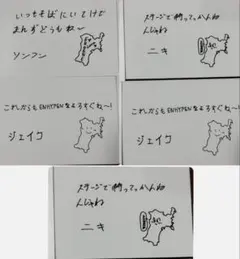 いっもそばにいてけが
まんずどうもね〜
ソンフン
ステージで待ってっかんね
んじゃね
ニキ
これからもENHYPENをよろすぐね〜!
ジェイク
これからもENHYPENをよろすぐね〜!
ジェイク
ステージで待ってっかんね
んじゃね
ニキ